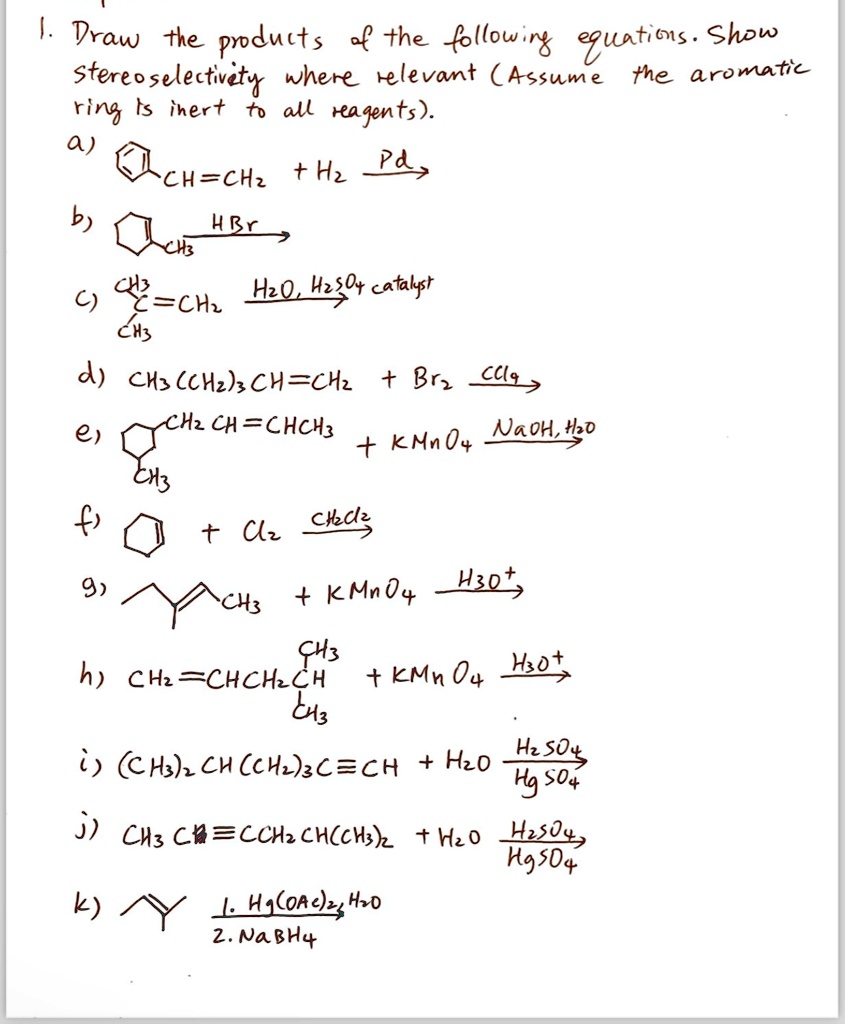 1. Draw the products of the following equations. Show
stereoselectivity where relevant (Assume the aromatic
ring is inert to all reagents).
a) CH=CH2 + H2 Pd
b) CH3 HBr
c) CH3 C=CH2 CH3 H2O, H2SO4 catalyst
d) CH3(CH2)3CH=CH2 + Br2 CCl4
e) CH2CH=CHCH3 CH3 + KMnO4 NaOH, H2O
f) + Cl2 CH2Cl2
g) CH3 + KMnO4 H3O+
h) CH2=CHCH2CH CH3 CH3 + KMnO4 H3O+
i) (CH3)2CH(CH2)3C≡CH + H2O H2SO4 HgSO4
j) CH3C≡CCH2CH(CH3)2 + H2O H2SO4 HgSO4
k) 1. Hg(OAc)2, H2O
2. NaBH4